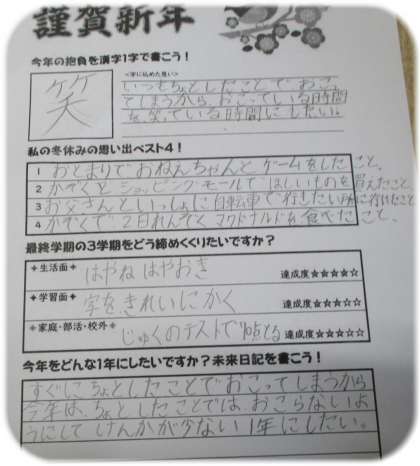 謹賀新年
今年の抱負を漢字1字で書こう!
笑
<字に込めた思い>
いつもちょとしたことでおこ
てしまうから、おこっている時間
を、笑っている時間にしたい。
私の冬休みの思い出ベスト4!
1 おとまりでおねんちゃんとゲームをしたこと、
2 かぞくとショッピングモールでほしいものを買えたこと、
3 お父さんといっしょに自転車で行きたい所に行けたこと
4 かぞくで2日れんぞくマクドナルドを食べたこと、
最終学期の3学期をどう締めくくりたいですか?
✦生活面✦ はやねはやおき 達成度☆☆☆☆☆
✦学習面✦ 字をきれいにかく 達成度☆☆☆☆☆
✦家庭・部活・校外✦ じゅくのテストで 点とる 達成度☆☆☆☆☆
今年をどんな1年にしたいですか?未来日記を書こう!
すぐにちょとしたことでおこってしまうから
今年は、ちょとしたことでは、おこらないよ
うにしてけんかが少ない1年にしたい。